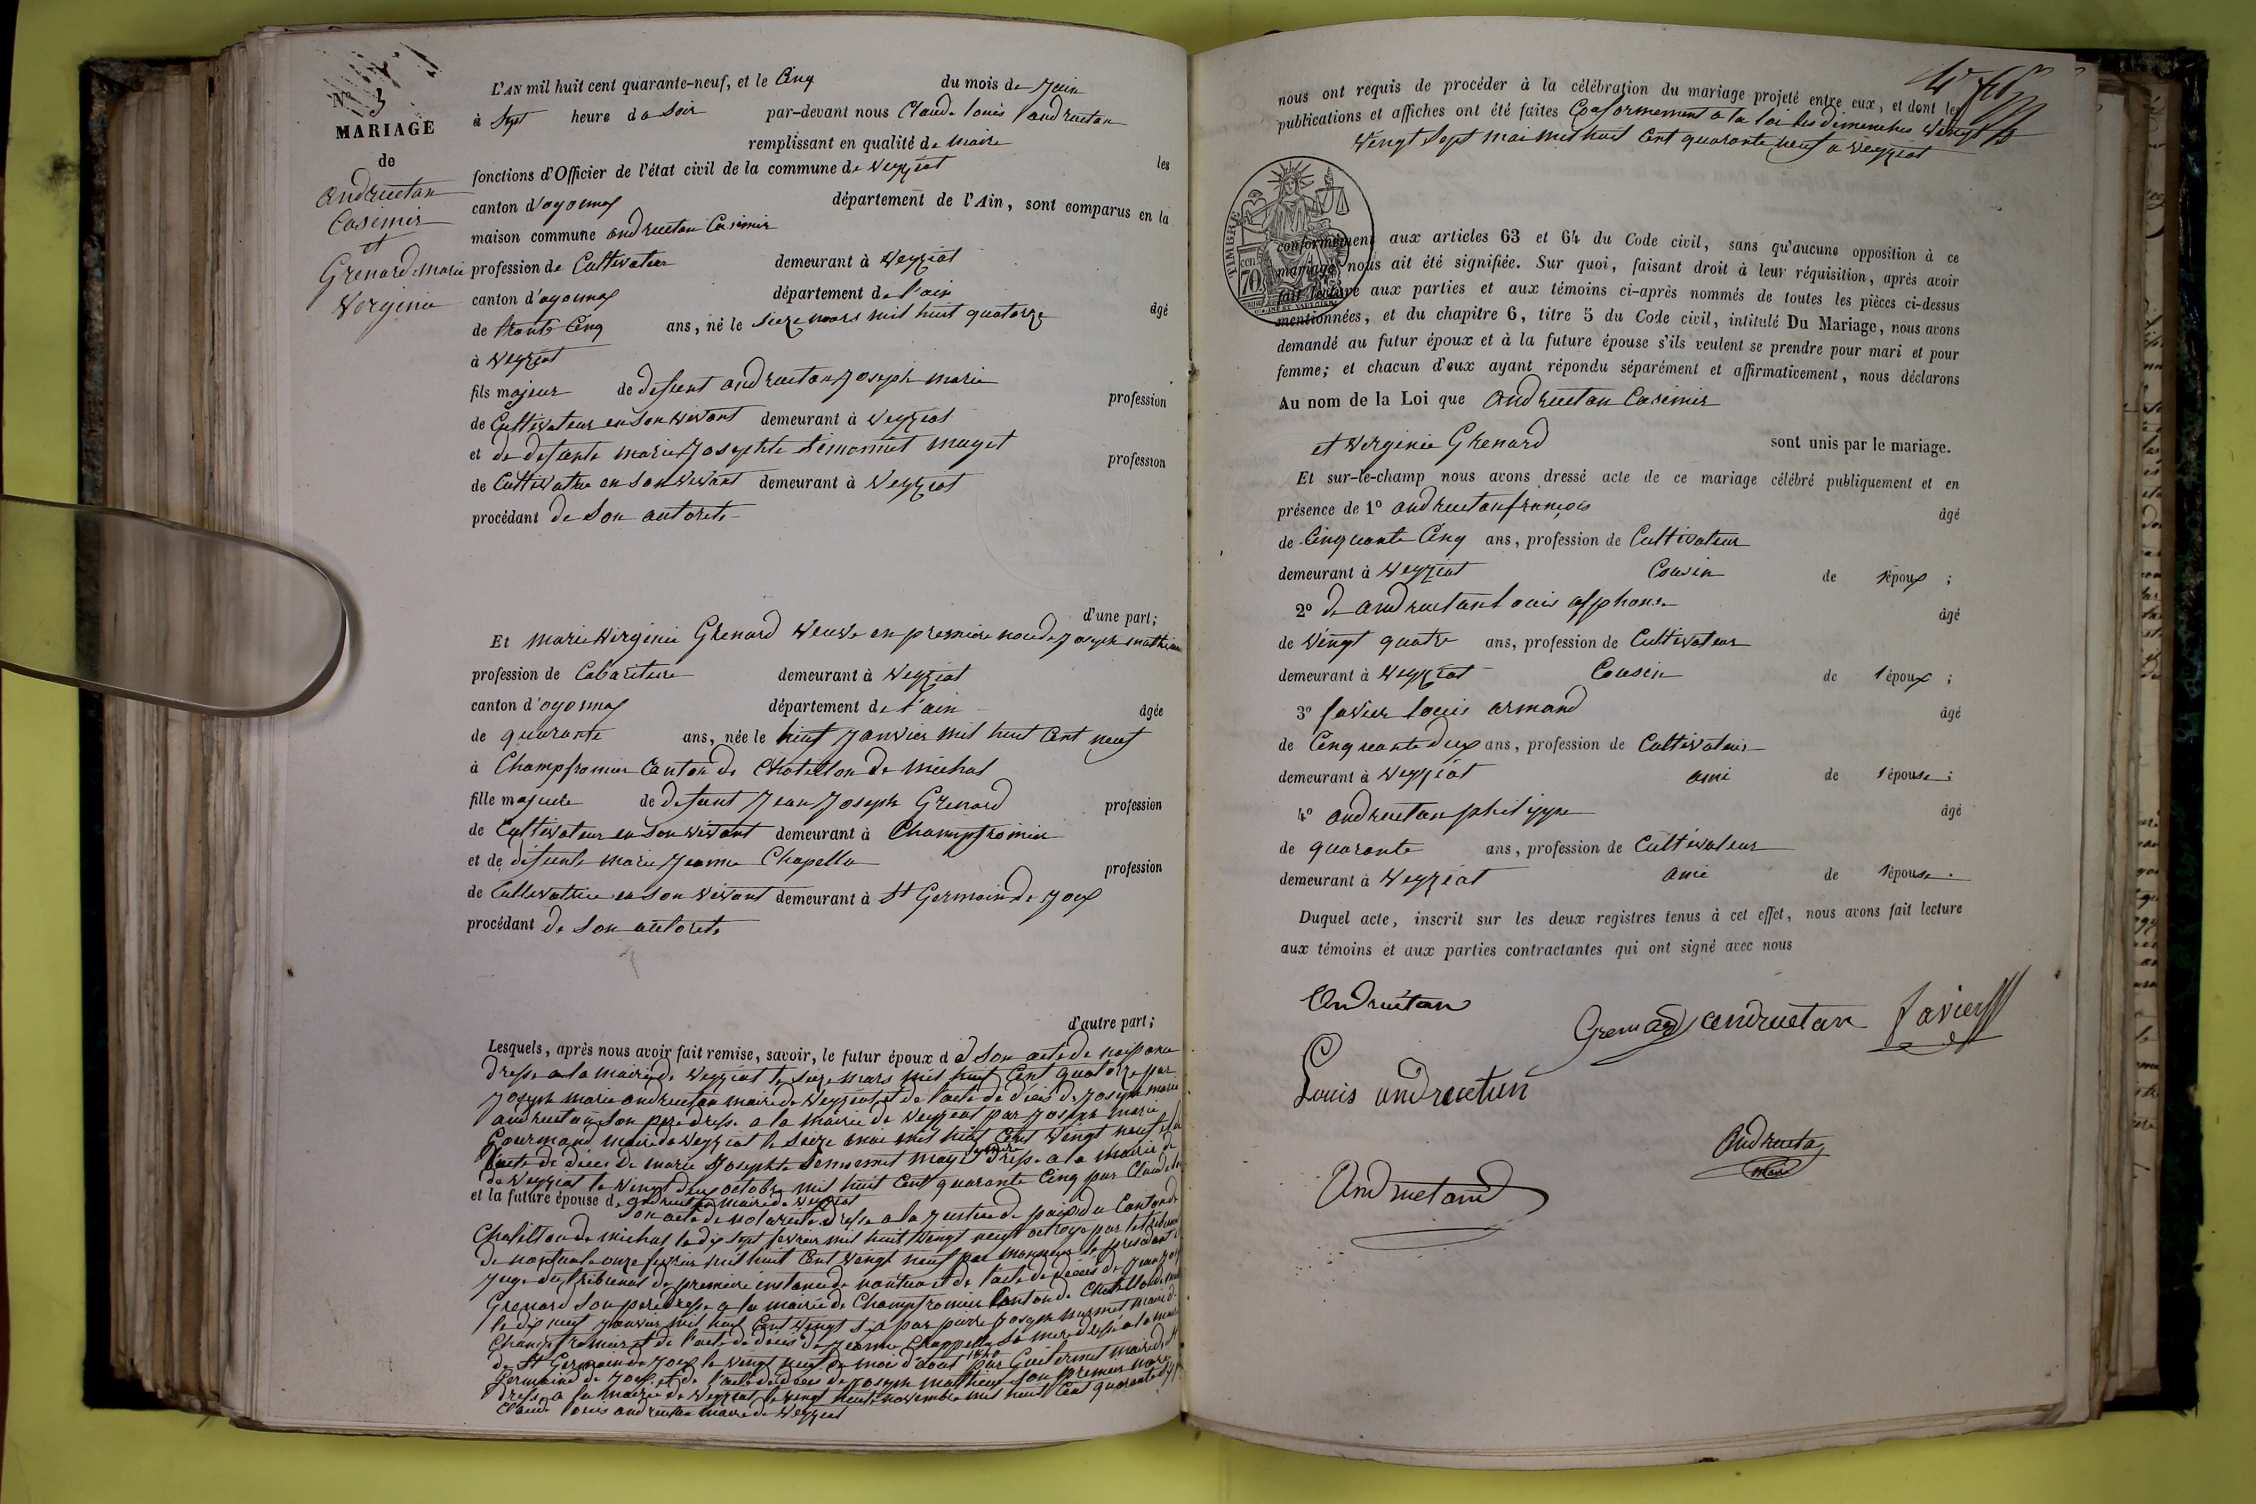 N° 3
MARIAGE
de
andruetan
Casimir
et
Grenard marie
Virginie
L'AN mil huit cent quarante-neuf, et le Cinq du mois de Juin
à Sept heure du Soir par-devant nous Claude louis andruetan
remplissant en qualité de maire les
fonctions d'Officier de l'état civil de la commune de Veyziat
canton d'oyonnax département de l'Ain, sont comparus en la
maison commune andruetan Casimir
profession de Cultivateur demeurant à Veyziat
canton d'oyonnax département de l'ain âgé
de trente Cinq ans, né le Seize mars mil huit quatorze
à Veyziat
fils majeur de defunt andruetan Joseph marie profession
de Cultivateur en Son vivant demeurant à Veyziat
et de defunte marie Josephte Semonnet maget profession
de Cultivatrice en Son vivant demeurant à Veyziat
procédant de Son autorete
d'une part;
Et marie Virginie Grenard veuve en premiere noce de Joseph mathieu
profession de Cabaretiere demeurant à Veyziat
canton d'oyonnax département de l'ain âgée
de quarante ans, née le neuf Janvier mil huit Cent neuf
à Champfromier Canton de Chatillon de michal
fille majeure de defunt Jean Joseph Grenard profession
de Cultivateur en Son vivant demeurant à Champfromier
et de défunte marie Jeanne Chapelle profession
de Cultivatrice en Son vivant demeurant à St Germain de Joux
procédant de Son autorete
d'autre part;
Lesquels, après nous avoir fait remise, savoir, le futur époux d e Son acte de naissance
dresse a la mairie de Veyziat le Seize mars mil huit Cent quatorze par
Joseph marie andruetan maire de Veyziat et de l'acte de décès de Joseph marie
andruetan Son pere dresse a la mairie de Veyziat par Joseph marie
Gourmand maire de Veyziat le Seize mai mil huit Cent vingt neuf et de
l'acte de décès de marie Josephte Semonnet maget Sa mère dresse a la mairie de
de Veyziat le vingt deux octobre mil huit Cent quarante Cinq par Claude louis
et la future épouse d andruetan maire de Veyziat
Son acte de notoriete dresse a la Justice de paix du Canton de
Chatillon de michal le dix Sept fevrier mil huit vingt neuf octroye par le tribunal
de nantua le onze fevrier mil huit Cent vingt neuf par monsieur le president
Juge du tribunal de premiere instance de nantua et de l'acte de décès de Jean Joseph
Grenard Son pere dresse a la mairie de Champfromier Canton de Chatillon de michal
le dix neuf Janvier mil huit Cent vingt Six par pierre Joseph maire de
Champfromier et de l'acte de décès de Jeanne Chappelle Sa mere dresse a la mairie
de St Germain de Joux le vingt neuf du mois d'aout 1840 par Guillermet maire de St
Germain de Joux et de l'acte de décès de Joseph mathieu Son premier mari
dresse a la mairie de Veyziat le vingt novembre mil huit Cent quarante
Claude louis andruetan maire de Veyziat
nous ont requis de procéder à la célébration du mariage projeté entre eux, et dont les
publications et affiches ont été faites Conformement a la loi les dimenches vingt
vingt Sept mai mil huit Cent quarante neuf a Veyziat
TIMBRE
70
conformément aux articles 63 et 64 du Code civil, sans qu'aucune opposition à ce
mariage nous ait été signifiée. Sur quoi, faisant droit à leur réquisition, après avoir
fait lecture aux parties et aux témoins ci-après nommés de toutes les pièces ci-dessus
mentionnées, et du chapitre 6, titre 5 du Code civil, intitulé Du Mariage, nous avons
demandé au futur époux et à la future épouse s'ils veulent se prendre pour mari et pour
femme; et chacun d'eux ayant répondu séparément et affirmativement, nous déclarons
Au nom de la Loi que andruetan Casimir
et Virginie Grenard sont unis par le mariage.
Et sur-le-champ nous avons dressé acte de ce mariage célébré publiquement et en
présence de 1° andruetan françois âgé
de Cinquante Cinq ans, profession de Cultivateur
demeurant à Veyziat Cousin de l'époux ;
2° de andruetan louis alphonse âgé
de vingt quatre ans, profession de Cultivateur
demeurant à Veyziat Cousin de l'époux ;
3° favier louis armand âgé
de Cinquante deux ans, profession de Cultivateur
demeurant à Veyziat ami de l'épouse ;
4° andruetan philippe âgé
de quarante ans, profession de Cultivateur
demeurant à Veyziat ami de l'épouse.
Duquel acte, inscrit sur les deux registres tenus à cet effet, nous avons fait lecture
aux témoins et aux parties contractantes qui ont signé avec nous
Andruétan
Grenard andruetan favier
Louis andruetan
Andruetan
maire
Andruetand